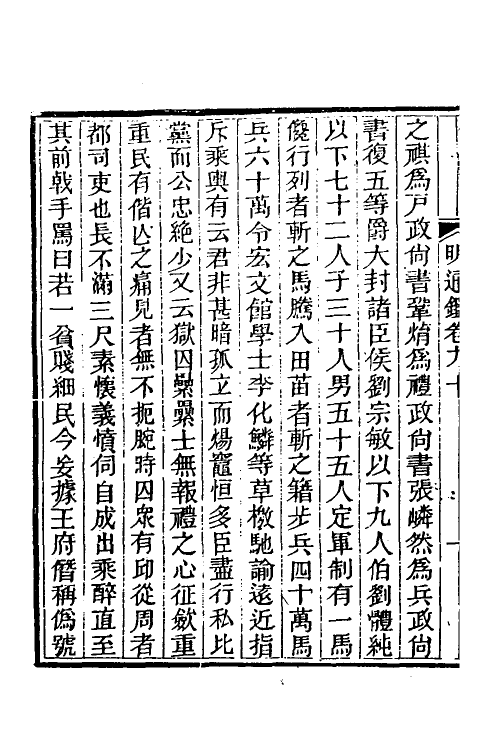 明通鑑卷九十
之祺爲戸政尙書鞏焴爲禮政尙書張嶙然爲兵政尙
書復五等爵大封諸臣侯劉宗敏以下九人伯劉體純
以下七十二人子三十人男五十五人定軍制有一馬
儳行列者斬之馬騰入田苗者斬之籍步兵四十萬馬
兵六十萬令宏文館學士李化鱗等草檄馳諭遠近指
斥乘輿有云君非甚暗孤立而煬竈恒多臣盡行私比
黨而公忠絶少又云獄囚纍纍士無報禮之心征歛重
重民有偕亾之痛見者無不扼腕時囚衆有邱從周者
都司吏也長不滿三尺素懷義憤伺自成出乘醉直至
其前戟手罵曰若一貧賤細民今妄據王府僭稱僞號